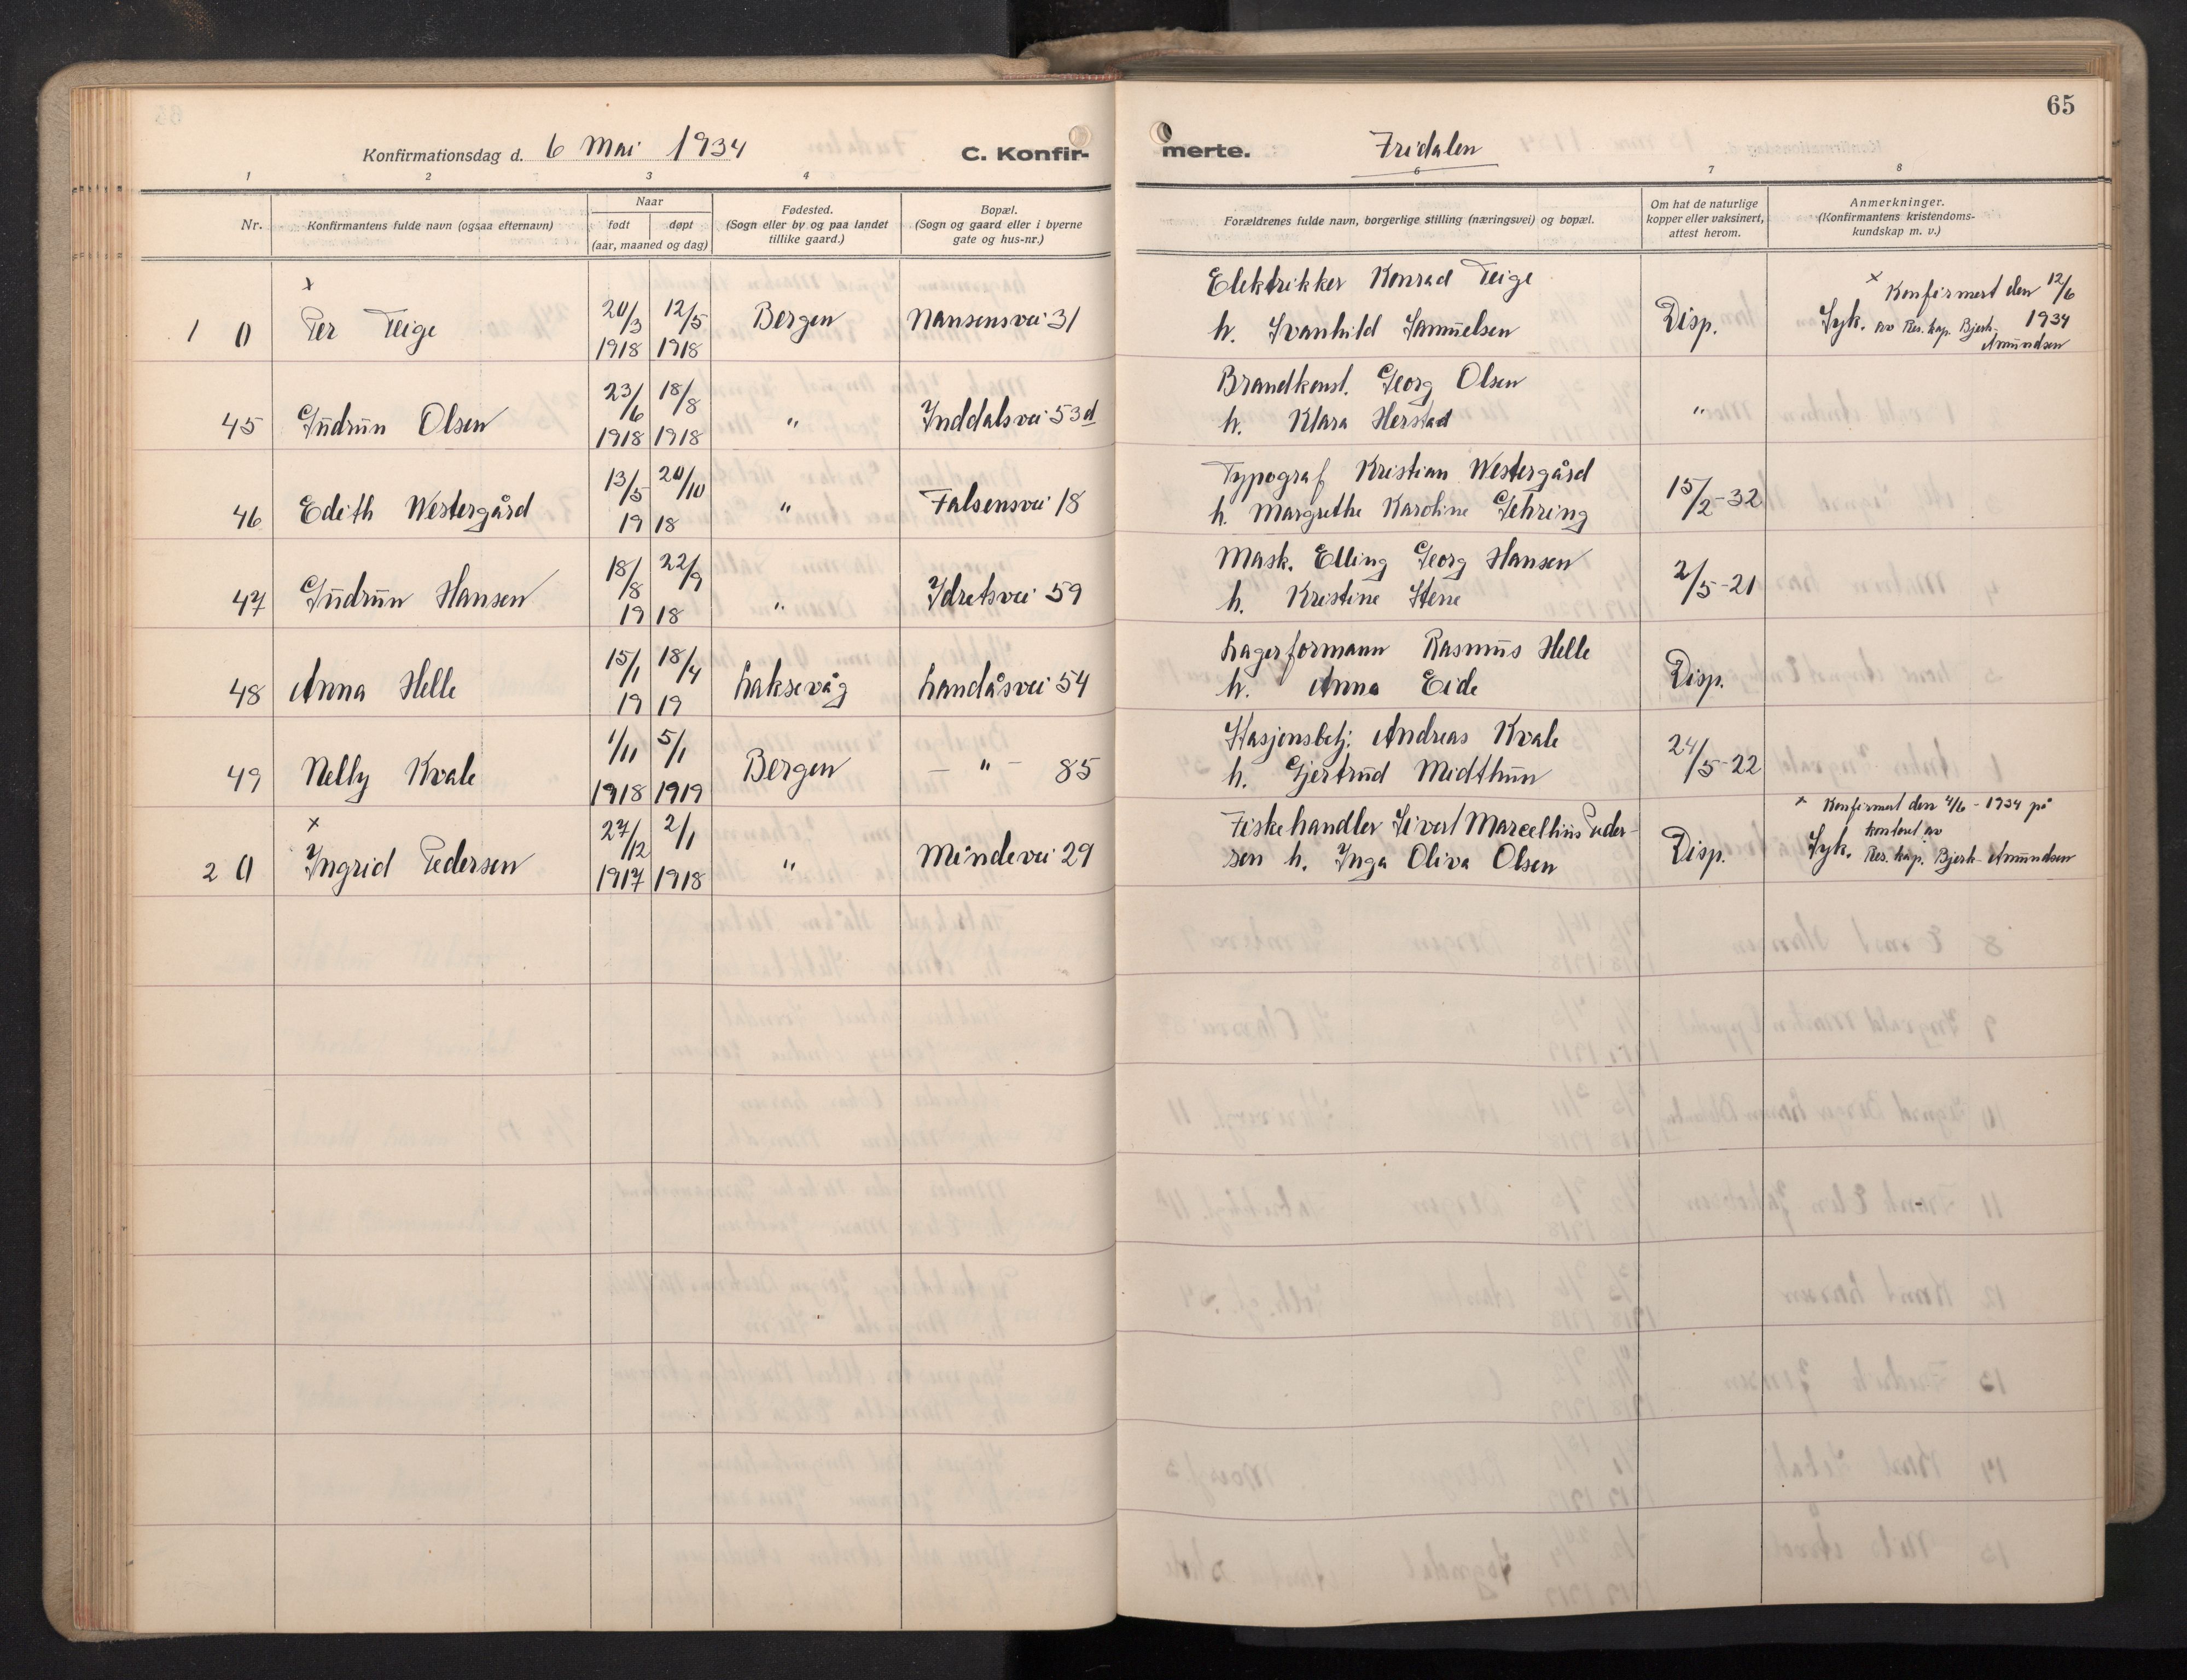 65
Konfirmationsdag d. 6 Mai 1934 C. Konfir-
merte. Fridalen
1 2 3 4 6 7 8
Nr. Konfirmantens fulde navn (ogsaa efternavn)
Naar
født døpt
(aar, maaned og dag)
Fødested.
(Sogn eller by og paa landet
tillike gaard.)
Bopæl.
(Sogn og gaard eller i byerne
gate og hus-nr.)
Forældrenes fulde navn, borgerlige stilling (næringsvei) og bopæl.
Om hat de naturlige
kopper eller vaksinert,
attest herom.
Anmerkninger.
(Konfirmantens kristendoms-
kundskap m. v.)
x
1 0 Per Teige 20/3 1918 12/5 1918 Bergen Nansensvei 31
Elektrikker Konrad Teige
h. Svanhild Samuelsen
Disp.
x Konfirmert den 12/6
Syk. av Res. kap. Bjerk- 1934
Amundsen
45 Gudrun Olsen 23/6 1918 18/8 1918 " Inddalsvei 53d
Brandkonst. Georg Olsen
h. Klara Herstad
"
46 Edith Westergård 13/5 20/10 1918 " Falsensvei 18
Typograf Kristian Westergård
h. Margrethe Karoline Gehring
15/2-32
47 Gudrun Hansen 18/8 22/9 1918 " Idretsvei 59
Mask. Elling Georg Hansen
h. Kristine Stene
2/5-21
48 Anna Helle 15/1 18/4 1919 Laksevåg Landåsvei 54
Lagerformann Rasmus Helle
h. Anna Eide
Disp.
49 Nelly Kvale 1/11 1918 5/1 1919 Bergen — " — 85
Stasjonsbetj. Andreas Kvale
h. Gjertrud Midthun
24/5-22
x
2 0 Ingrid Pedersen 27/12 1917 2/1 1918 " Mindevei 29
Fiskehandler Sivert Marcellius Peder-
sen h. Inga Oliva Olsen
Disp.
x Konfirmert den 4/6 - 1934 på
kontoret av
Syk. Res. kap. Bjerk-Amundsen